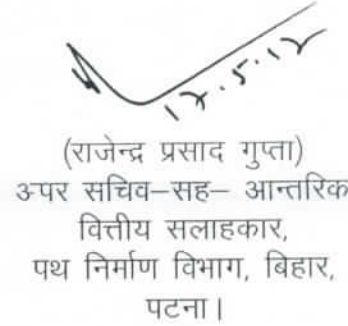 17.5.12
(राजेन्द्र प्रसाद गुप्ता)
अपर सचिव–सह– आन्तरिक
वित्तीय सलाहकार,
पथ निर्माण विभाग, बिहार,
पटना।